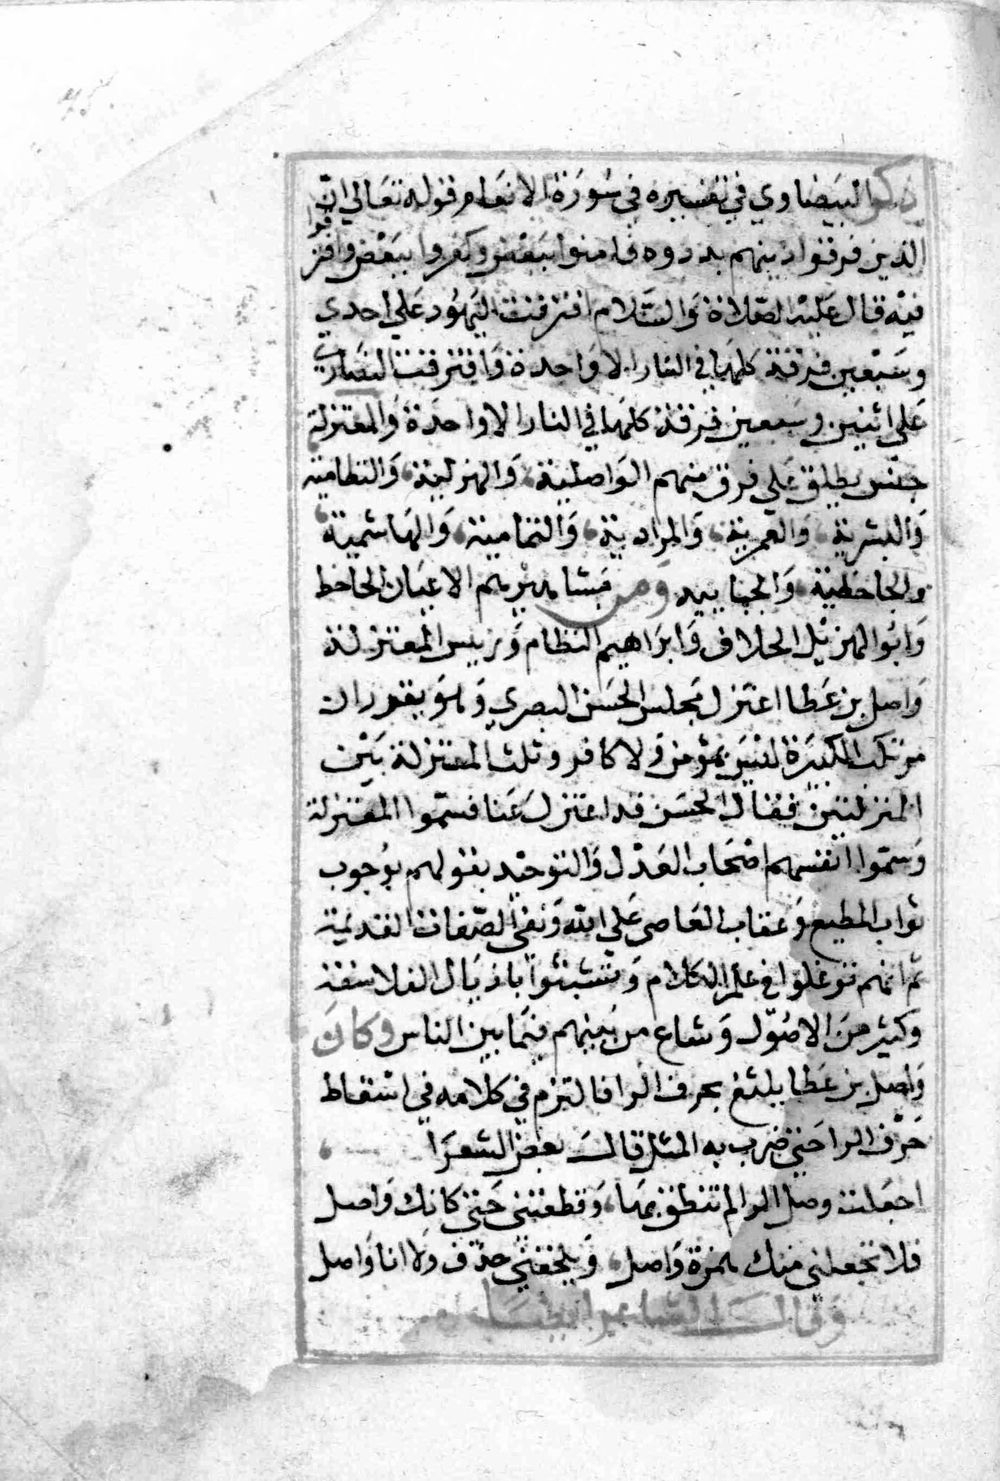 ذكر البيضاوي في تفسيره في سورة الانعام قوله تعالي ان
الذين فرقوا دينهم بددوه فامنوا ببعض وكفروا ببعض وافتر
قوا
فيه قال عليه الصلاة والسلام افترقت اليهود علي احدي
وسبعين فرقة كلها في النار الا واحدة وافترقت النصاري
علي اثنين وسبعين فرقة كلها في النار الا واحدة والمعتزلة
جنس يطلق علي فرق منهم الواصلية والهزلية والنظامية
والبشرية والعمرية والمرادية والثمامية والهاشمية
والجاحظية والجبايية ومن مشاهيرهم الاعيان الجاحظ
وابو الهزيل العلاف وابراهيم النظام وريس المعتزلة
واصل بن عطا اعتزل مجلس الحسن البصري وهو يقرر ان
مرتكب الكبيرة ليس بمؤمن ولا كافر وثلث المنزلة بين
المنزلتين فقال الحسن قد اعتزل عنا فسموا المعتزلة
وسموا انفسهم اصحاب العدل والتوحيد بقولهم بوجوب
ثواب المطيع وعقاب العاصي علي الله ونفي الصفات القديمة
ثم انهم توغلوا في علم الكلام وتشبثوا باذيال الفلاسفة
وكثير من الاصول وشاع من بينهم فيما بين الناس وكان
واصل بن عطا يلثغ بحرف الرا فالتزم في كلامه في اسقاط
حرف الرا حتي ضرب به المثل قال بعض الشعرا
اجعلت وصلي الرا لم تنطق بها وقطعتني حتي كانك واصل
فلا تجعلني منك همزة واصل ويلحقني حذف ولا انا واصل
وقال الشاعر ايضا